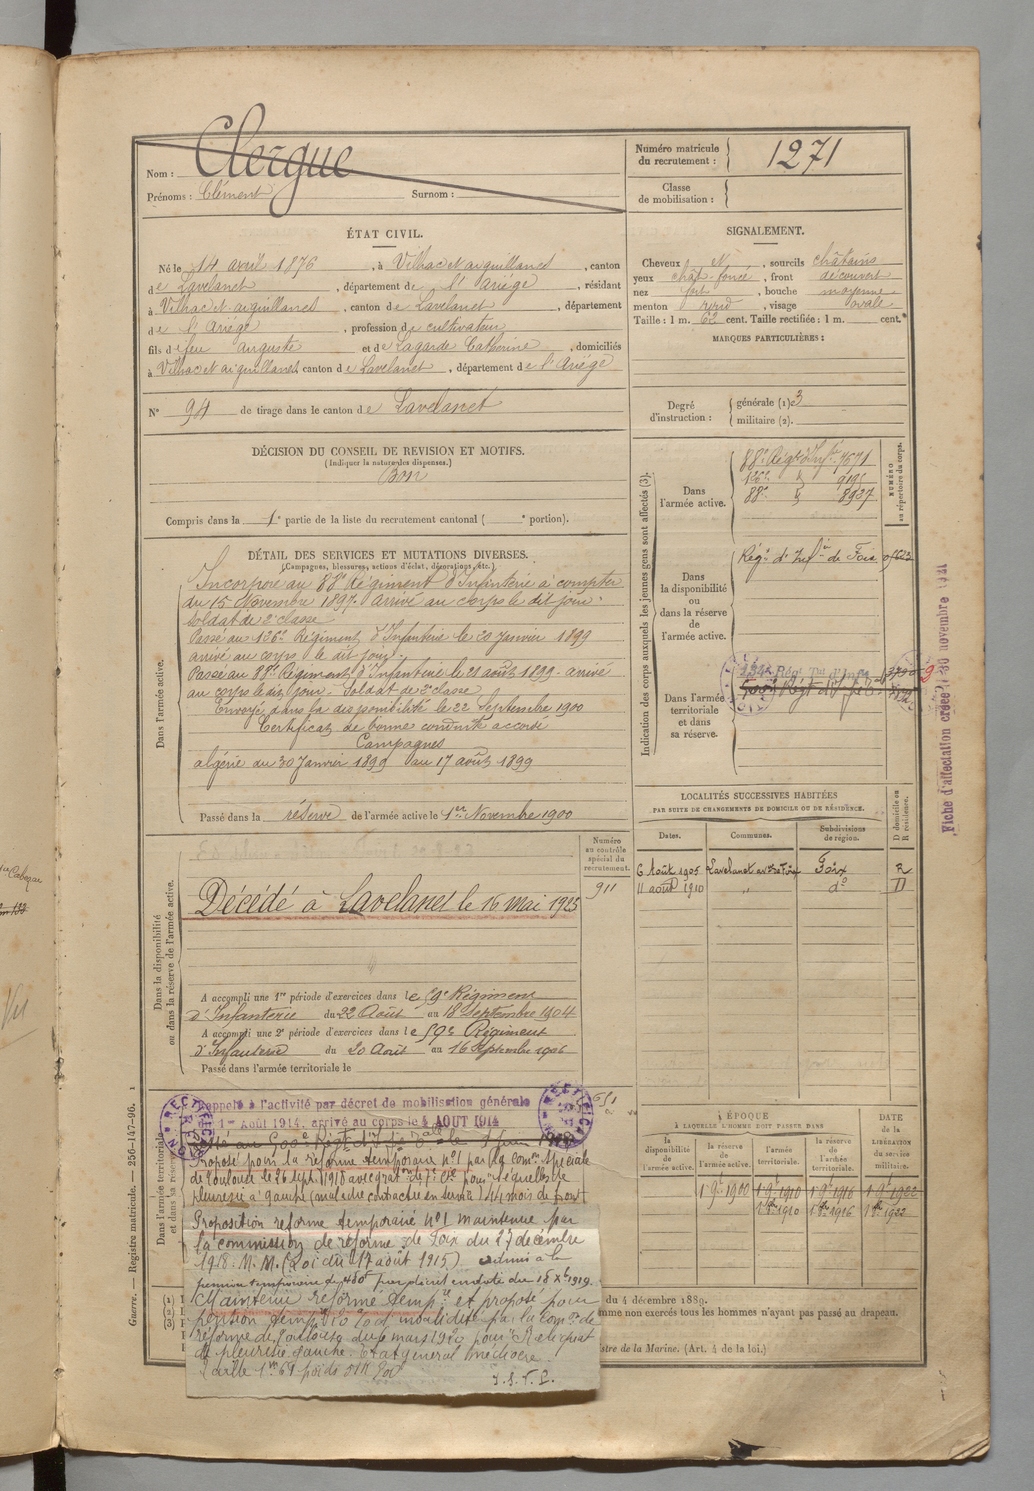 Nom : Clergue
Prénoms : Clément Surnom :
Numéro matricule
du recrutement : 1271
Classe
de mobilisation :
ÉTAT CIVIL.
Né le 14 avril 1876, à Vilhac et aiguillanes, canton
de Lavelanet, département de l'Ariége, résidant
à Vilhac et aiguillanes, canton de Lavelanet, département
de l'Ariége, profession de cultivateur
fils de feu auguste et de Lagarde Catherine, domiciliés
à Vilhac et aiguillanes, canton de Lavelanet, département de l'Ariége
N° 94 de tirage dans le canton de Lavelanet
SIGNALEMENT.
Cheveux N, sourcils châtains
yeux chât. foncé, front découvert
nez fort, bouche moyenne
menton rond, visage ovale
Taille : 1 m. 62 cent. Taille rectifiée : 1 m. cent.
MARQUES PARTICULIÈRES :
Degré
d'instruction :
générale (1) 3
militaire (2).
DÉCISION DU CONSEIL DE REVISION ET MOTIFS.
(Indiquer la nature des dispenses.)
Bon
Compris dans la 1e partie de la liste du recrutement cantonal ( e portion).
DÉTAIL DES SERVICES ET MUTATIONS DIVERSES.
(Campagnes, blessures, actions d'éclat, décorations, etc.)
Dans l'armée active.
Incorporé au 88e Régiment d'Infanterie à compter
du 15 Novembre 1897. Arrivé au corps le dit jour.
Soldat de 2e classe
Passé au 126e Régiment d'Infanterie le 30 Janvier 1899
arrivé au corps le dit jour.
Passé au 88e Régiment d'Infanterie le 21 août 1899. arrivé
au corps le dit jour. Soldat de 2e classe
Envoyé dans la disponibilité le 22 Septembre 1900
Certificat de bonne conduite accordé
Campagnes
algérie du 30 Janvier 1899 au 17 août 1899
Passé dans la réserve de l'armée active le 1er Novembre 1900
Indication des corps auxquels les jeunes gens sont affectés (3).
NUMÉRO
au répertoire du corps.
Dans
l'armée active.
88e Régt d'Infie 7571
88e 8927
Dans
la disponibilité
ou
dans la réserve
de
l'armée active.
Régt d'Infie de Foix
Dans l'armée
territoriale
et dans
sa réserve.
Régt Tal d'Infie
Fiche d'affectation créée le 30 novembre 1921
Dans la disponibilité
ou dans la réserve de l'armée active.
Numéro
au contrôle
spécial du
recrutement.
911
Décédé à Lavelanet le 16 mai 1925
A accompli une 1re période d'exercices dans le 59e Régiment
d'Infanterie du 22 Août au 18 Septembre 1904
A accompli une 2e période d'exercices dans le 59e Régiment
d'Infanterie du 20 Août au 16 Septembre 1906
Passé dans l'armée territoriale le
LOCALITÉS SUCCESSIVES HABITÉES
PAR SUITE DE CHANGEMENTS DE DOMICILE OU DE RÉSIDENCE.
D domicile ou
R résidence.
Dates. Communes. Subdivisions
de région.
6 Août 1905 Lavelanet Foix R
11 août 1910 " do D
Dans l'armée territoriale
et dans sa réserve
Rappelé à l'activité par décret de mobilisation générale
du 1er Août 1914, arrivé au corps le 4 AOUT 1914
RECTIFICATION
Proposé pour la réforme temporaire n°1 par la comon spéciale
de Toulouse le 26 sept. 1918
pleurésie à gauche (maladie contractée en service) 44 mois de front
Proposition reforme temporaire n°1 maintenue par
la commission de réforme de Foix du 27 décembre
1918. M. M. (Loi du 17 août 1915) admis à la
pension temporaire de 480f par décret en date du 18 Xbre 1919.
Maintenu réformé tempre et proposé pour
pension tempre 10 % d'invalidité par la Comon de
réforme de Toulouse du 6 mars 1920 pour : Reliquat
de pleurésie gauche. Etat général médiocre.
Taille 1m 61
ÉPOQUE
À LAQUELLE L'HOMME DOIT PASSER DANS
DATE
DE LA
LIBÉRATION
du service
militaire.
la
disponibilité
de
l'armée active.
la réserve
de
l'armée active.
l'armée
territoriale.
la réserve
de
l'armée
territoriale.
1 9bre 1900 1 9bre 1910 1 9bre 1916 1 9bre 1922
1 8bre 1910 1 8bre 1916 1 8bre 1922
(1)
(2)
(3)
du 4 décembre 1889.
mme non exercés tous les hommes n'ayant pas passé au drapeau.
stre de la Marine. (Art. 4 de la loi.)
Guerre. — Registre matricule. — 256-147-96.